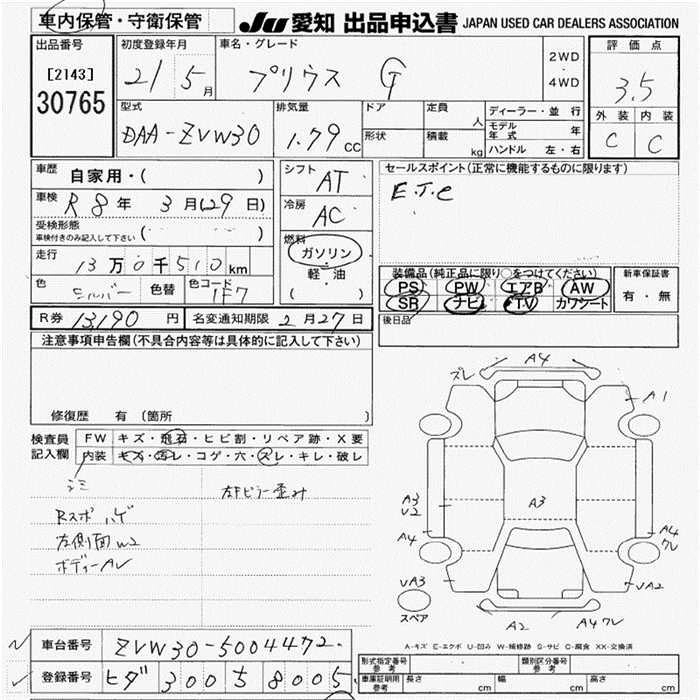 車内保管・守衛保管
JU 愛知 出品申込書 JAPAN USED CAR DEALERS ASSOCIATION
出品番号
[2143]
30765
初度登録年月
21 5 月
車名・グレード
プリウス G
2WD
・
4WD
評価点
3.5
外装 内装
C C
型式
DAA-ZVW30
排気量
1.79 cc
ドア
定員
人
形状
積載
kg
ディーラー・並行
モデル年式 年
ハンドル 左・右
車歴 自家用・( )
車検 R8年 3月(29日)
受検形態
車検付きのみ記入して下さい ( )
走行 13万0千510km
色 シルバー 色替 色コード 1F7
シフト AT
冷房 AC
燃料
ガソリン
・
軽・油
( )
セールスポイント(正常に機能するものに限ります)
E.T.C
装備品(純正品に限り○をつけてください)
PS PW エアB AW
SR ナビ TV カワシート
新車保証書
有・無
後日品
R券 13,190 円 名変通知期限 2月27日
注意事項申告欄(不具合内容等は具体的に記入して下さい)
修復歴 有(箇所 )
検査員記入欄
FW キズ・飛石・ヒビ割・リペア跡・X要
内装 キズ・汚レ・コゲ・穴・スレ・キレ・破レ
シミ
左Fピラー歪み
Rスポ ハゲ
左側面W2
ボディーAU
ズレ A4
A1
A3
A3
U2
A4
A4
ワレ
UA3
UA2
スペア
A2 A4ワレ
A-キズ E-エクボ U-凹み W-補修跡 S-サビ C-腐食 XX-交換済
車台番号 ZVW30-5004472
登録番号 ヒダ 300 ち 8005
形式指定番号参考
類別区分番号参考
車庫証明用参考 長さ cm 幅 cm 高さ cm